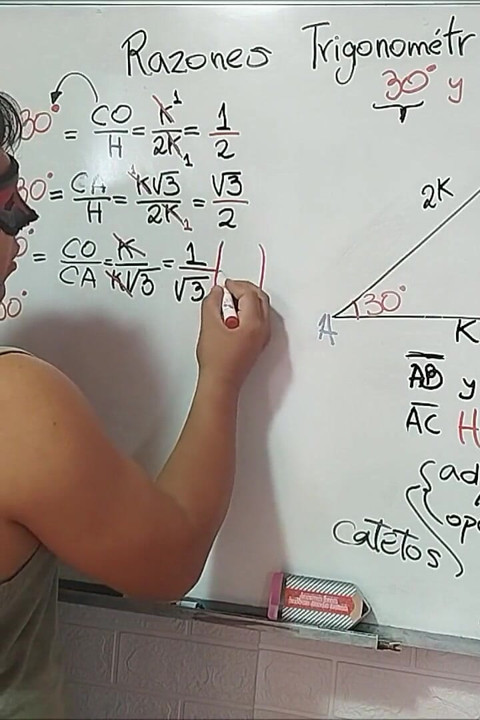 Razones Trigonométr
30° y
30° = CO/H = K/2K = 1/2
30° = CA/H = K√3/2K = √3/2
= CO/CA = K/K√3 = 1/√3 ( )
2K
A 30°
K
AB y
AC H
ad
op
Catetos